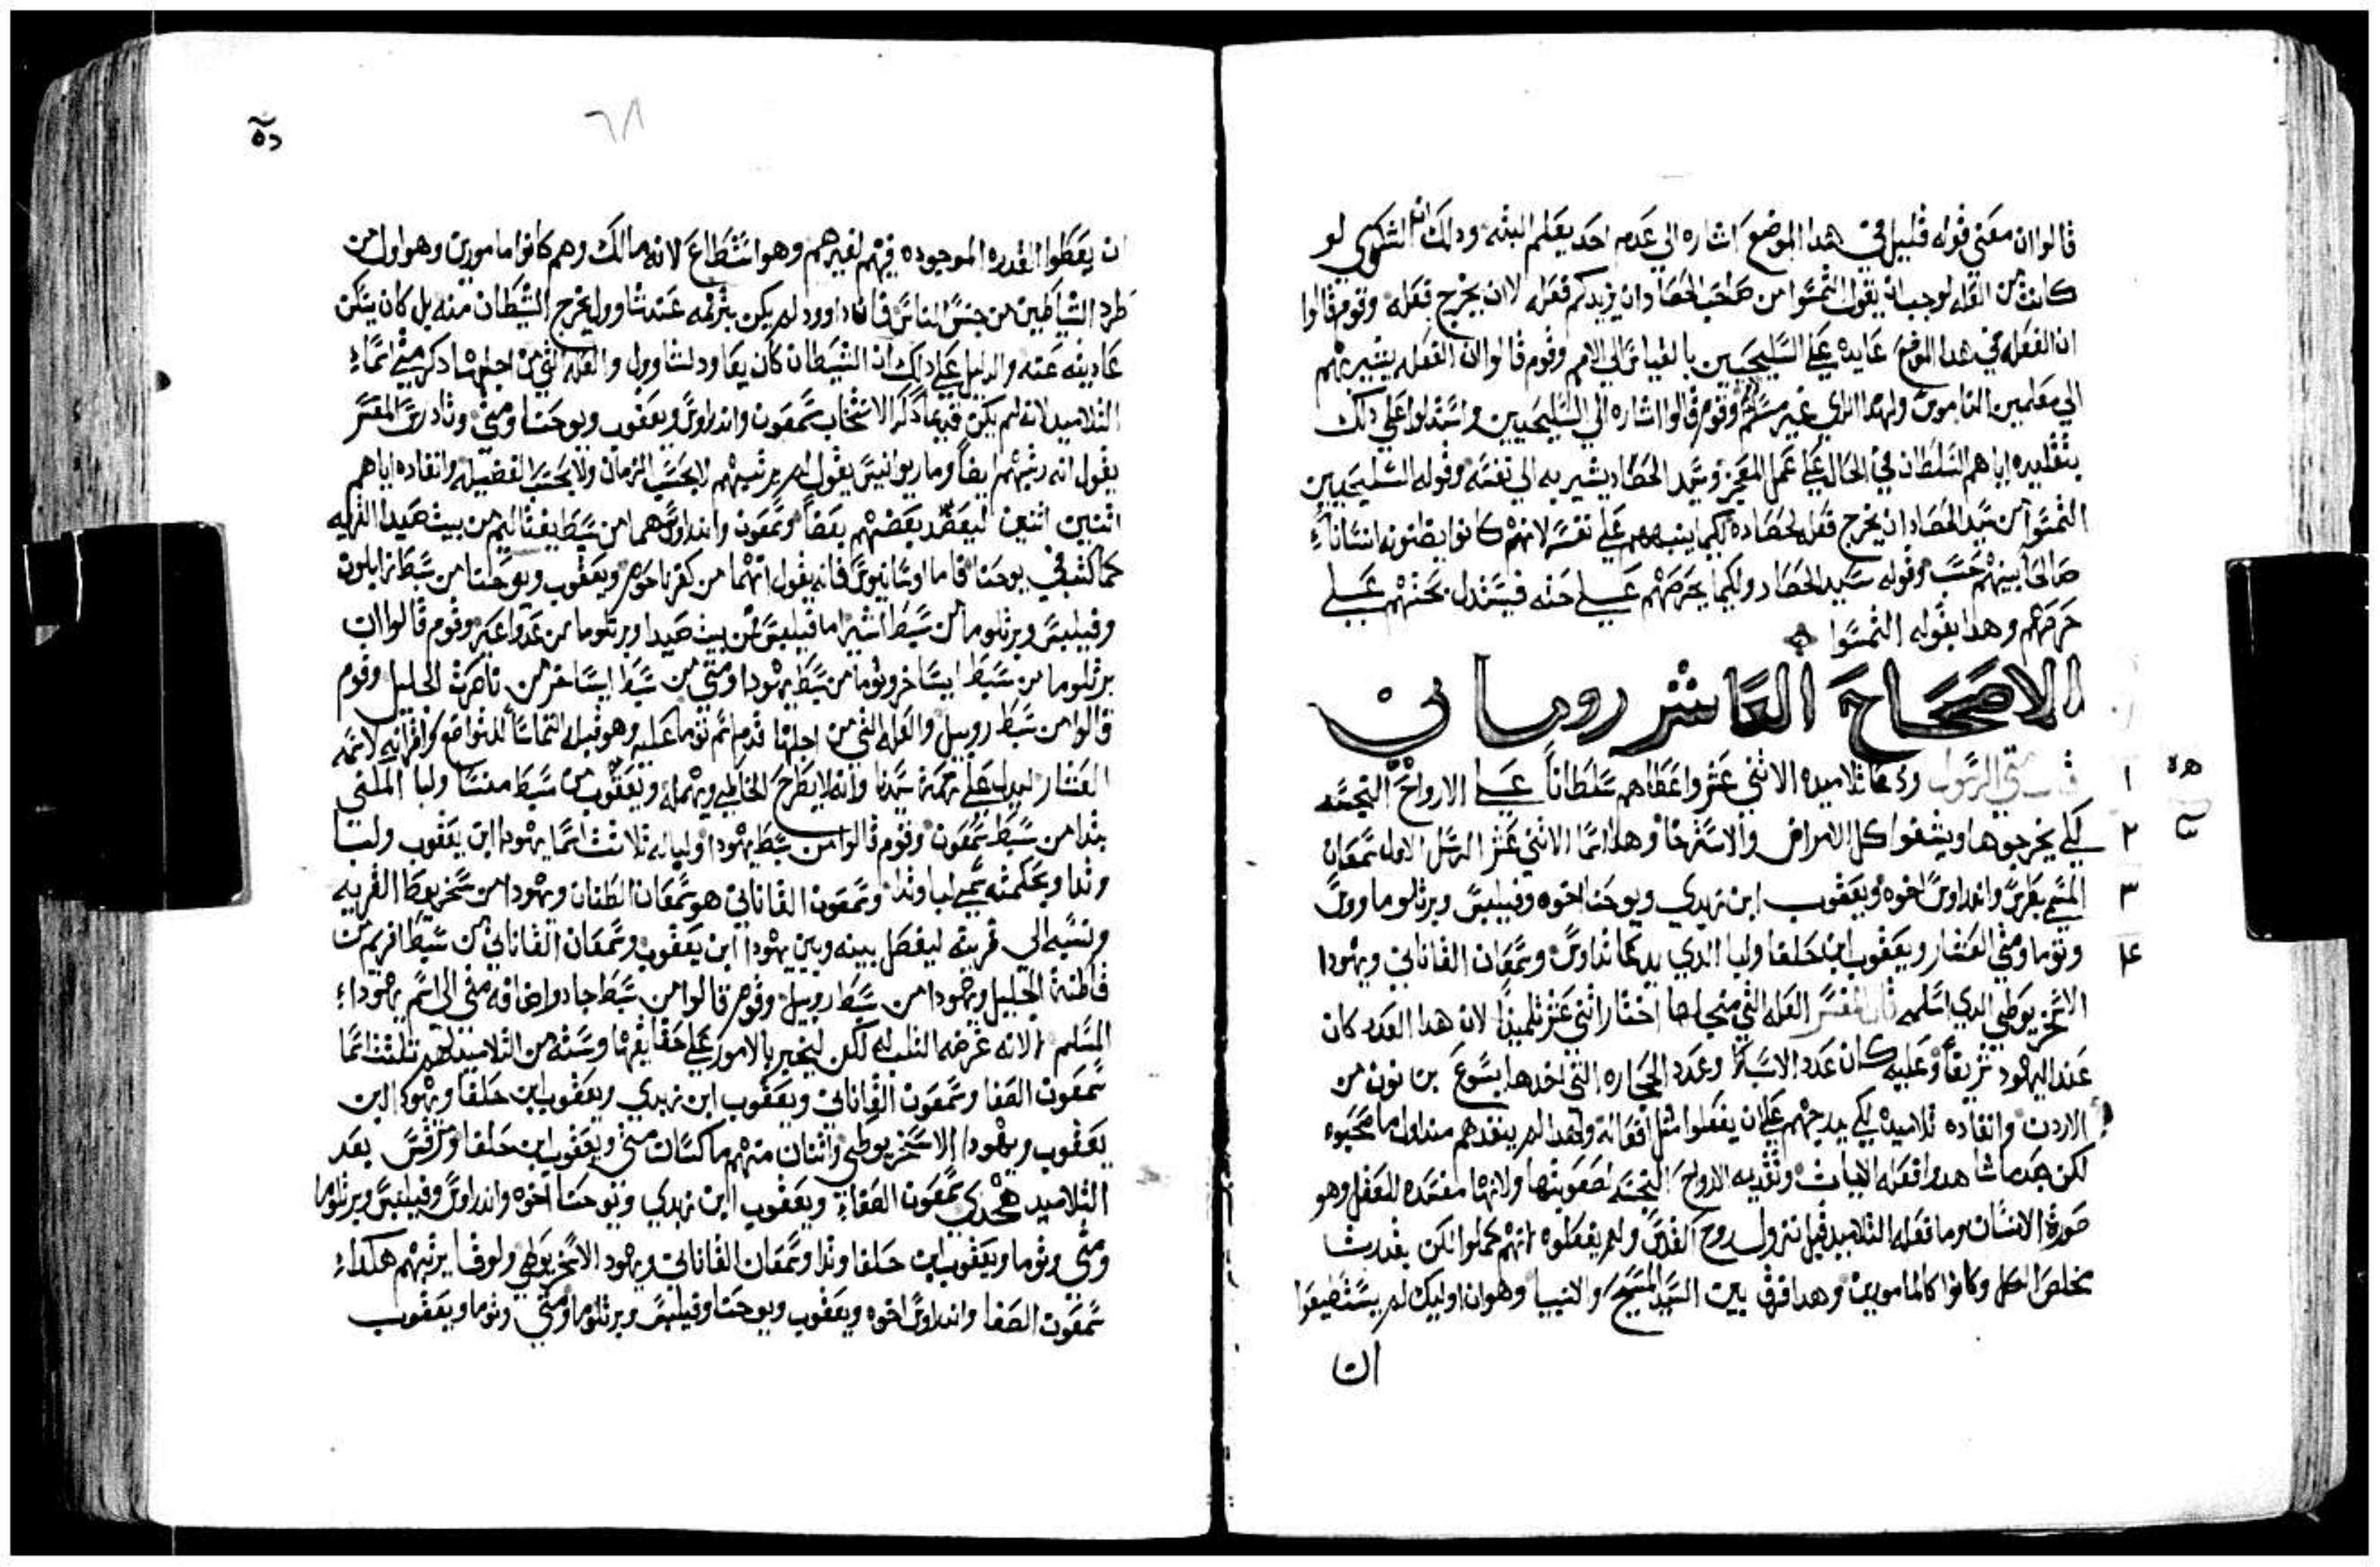 قالوا ان معني قوله قليل في هدا الموضع اشاره الي عدم احد يعلم البته ودلك ان الشكوي لو
كانت من القله لوجب ان يقول التمسوا من صاحب الحصاد ان يزيدكم فعله لا ان يخرج فعله وقوم قالوا
ان الفعله في هدا الموضع عايده علي السليحيين بالقياس الي الامم وقوم قالوا ان الفعله يشير بهم
الي معلمين الناموس ولهدا الراي غير مسلم وقوم قالوا اشاره الي السليحيين واستدلوا علي دلك
بتقليده اياهم السلطان في الحال علي عمل المعجز وسيد الحصاد يشير به الي نفسه وقوله للسليحيين
التمسوا من سيد الحصاد ان يخرج فعله لحصاده لكيما ينبههم علي نفسه لانهم كانوا يظنونه انسانا
صالحا بينهم حسب وقوله سيد الحصاد ولكيما يحرصهم علي حته فيستدل بحتهم علي
حرصهم وهدا بقوله التمسوا
الاصحاح العاشر روماني
قال متي الرسول ودعا تلاميده الاثني عشر واعطاهم سلطانا علي الارواح النجسه
لكي يخرجوها ويشفوا كل الامراض والاسترخا وهده اسما الاثني عشر الرسل الاول سمعان
المسمي بطرس واندراوس اخوه ويعقوب ابن زبدي ويوحنا اخوه وفيلبس وبرثلوما وس
وتوما ومتي العشار ويعقوب ابن حلفا ولبا الذي يدعا تداوس وسمعان القاناني ويهودا
الاسخريوطي الدي اسلمه قال المفسر العله التي من اجلها اختار اثني عشر تلميدا لان هدا العدد كان
عند اليهود شريفا وعليه كان عدد الاسباط وعدد الحجاره التي اخدها يسوع بن نون من
الاردن وانفاده تلاميده لكي يدرجهم علي ان يفعلوا مثل افعاله ولهدا لم ينفدهم مند اول ما صحبوه
لكن بعدما شاهدوا فعله الايات وتقديمه الارواح النجسه لصعوبتها ولانها مفسده للعقل وهو
صورة الانسان وما فعله التلاميد قبل نزول روح القدس ولم يفعلوه انهم كملوا لكن بقدر بشا
مخلص الكل وكانوا كالمامورين وهدا فرق بين السيد المسيح والانبيا وهو ان اوليك لم يستطيعوا
ان
ان يعطوا القدره الموجوده فيهم لغيرهم وهو استطاع لانه مالك وهم كانوا مامورين وهو اول من
طرد الشياطين من جنس الناس فان داوود لم يكن بترنمه عند شاوول يخرج الشيطان منه بل كان يسكن
عاديته عنه والدليل علي دلك ان الشيطان كان يعاود لشاوول والعله التي من اجلها دكر متي اسماء
التلاميد لانه لم يكن فيما دكر الانتخاب سمعون واندراوس ويعقوب ويوحنا ومتي وتادرس المفسر
يقول انه رتبهم ايضا وماريوانيس يقول لم يرتبهم لا بحسب الزمان ولا بحسب الفضيله وانفاده اياهم
اثنين اثنين ليعضد بعضهم بعضا وسمعون واندراوس هما من سبط يفتاليم من بيت صيدا القريه
كما كتب في يوحنا فاما اوسانيوس فانه يقول انهما من كفرناحوم ويعقوب ويوحنا من سبط زابلون
وفيلبس وبرثلوما من سبط اشير اما فيلبس من بيت صيدا وبرثلوما من عدوا عير وقوم قالوا ان
برثلوما من سبط ايساخر وتوما من سبط يهودا ومتي من سبط ايساخر من ناصرة الجليل وقوم
قالوا من سبط روبيل والعله التي من اجلها قدم اسم توما عليه وهو قبله التماسا للتواضع واقرانه لاسمه
العشار ليدل علي رحمة سيدنا وانه لا يطرح الخاطي ويهمله ويعقوب من سبط منسا ولبا الملقي
بتدا من سبط سمعون وقوم قالوا من سبط يهودا ولباله ثلاثت اسما يهودا ابن يعقوب ولبا
وتدا وبحكمته سمي لبا وتدا وسمعون القاناني هو سمعان الطنان ويهودا من سخريوطا القريه
ونسبه الي قريته ليفصل بينه وبين يهودا ابن يعقوب وسمعان القاناني من سبط افريم من
قاطنة الجليل ويهودا من سبط روبيل وقوم قالوا من سبط جاد واضافه متي الي اسم يهوداء
المسلم لا لانه غرضه الثلب له لكن ليخبر بالامور علي حقايقها وسته من التلاميد لهم ثلثت اسما
سمعون الصفا وسمعون القاناني ويعقوب ابن زبدي ويعقوب ابن حلفا ويهودا ابن
يعقوب ويهودا الاسخريوطي واثنان منهم ماكسان متي ويعقوب ابن حلفا ومرقس يعد
التلاميد هكدي سمعون الصفاء ويعقوب ابن زبدي ويوحنا اخوه واندراوس وفيلبس وبرثلوما
ومتي وتوما ويعقوب ابن حلفا وتدا وسمعان القاناني ويهودا الاسخريوطي ولوقا يرتبهم هكداء
سمعون الصفا واندراوس اخوه ويعقوب ويوحنا وفيلبس وبرثلوما ومتي وتوما ويعقوب